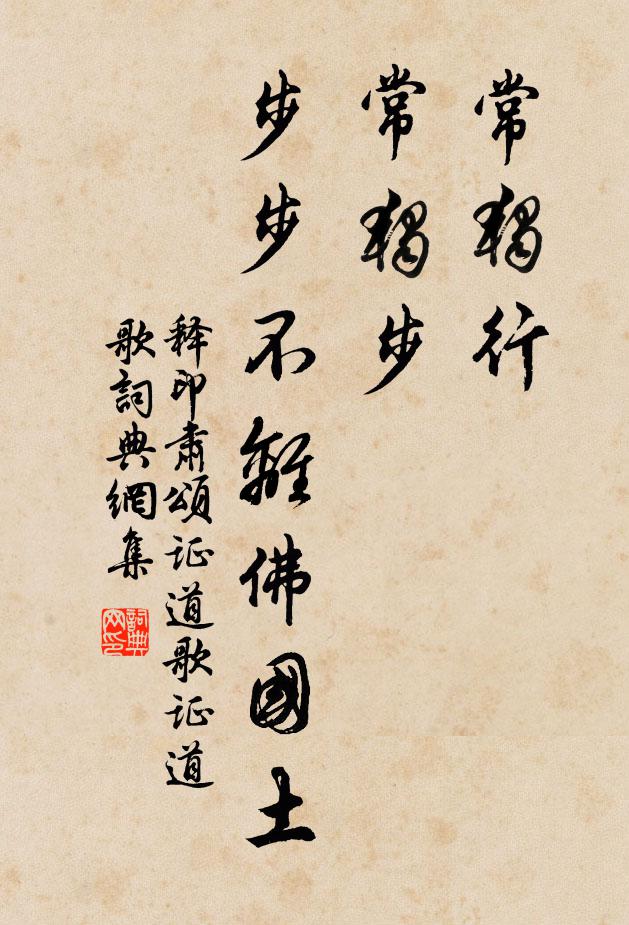 常獨行
常獨步
步步不離佛國土
释印肃頌证道歌证道
歌詞典網集
詞典
网印